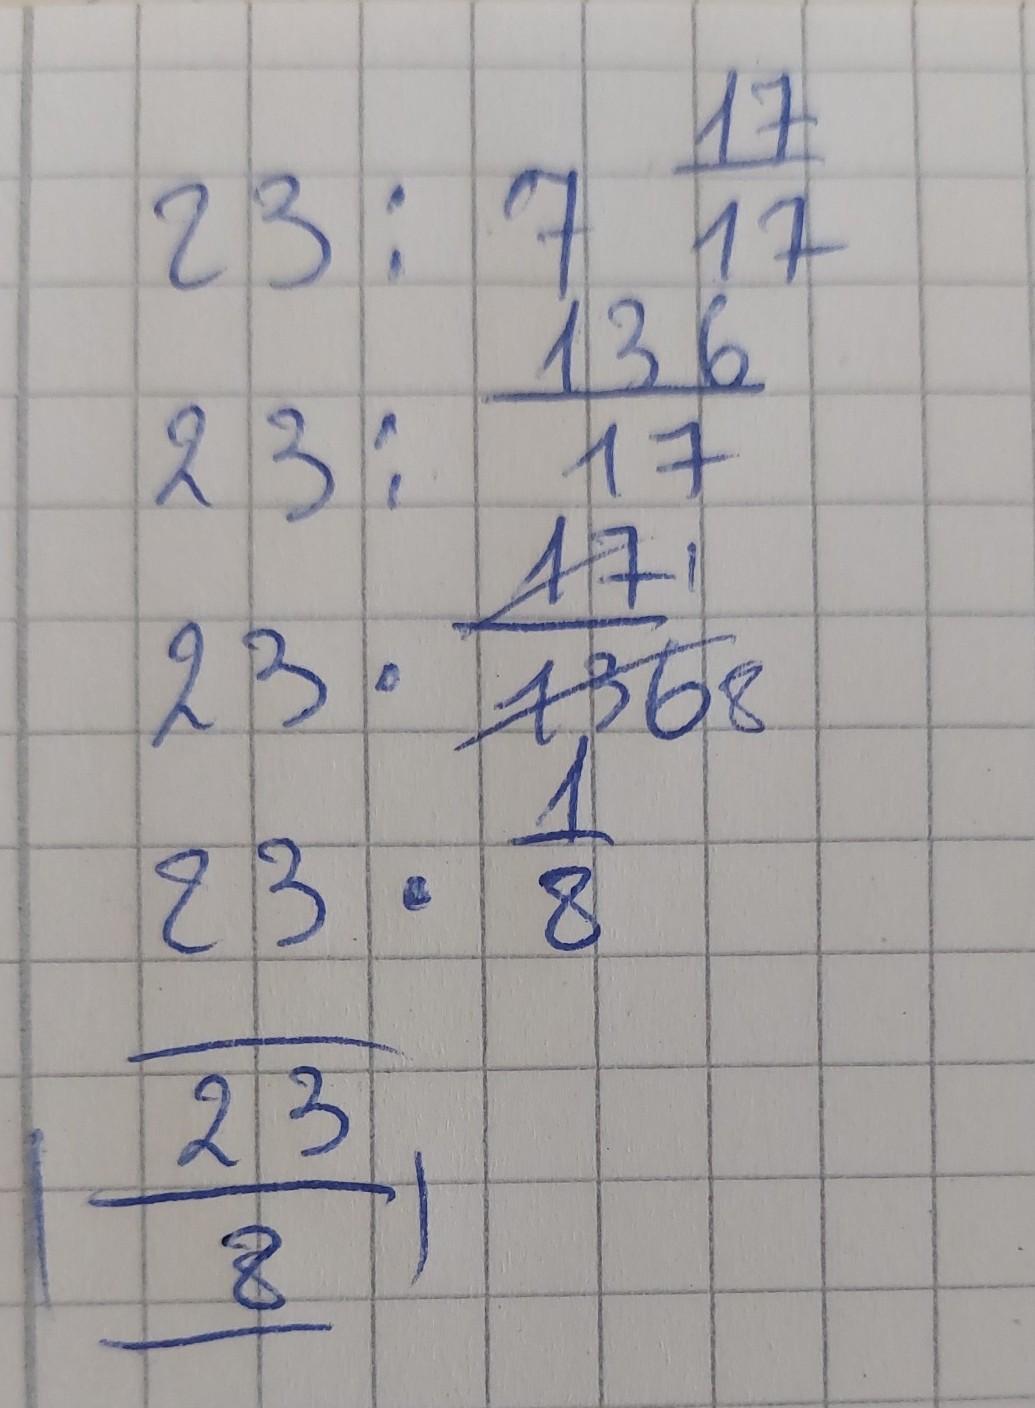 23 : 7 17/17
23 : 136/17
23 · 17 1/136 8
23 · 1/8
23/8